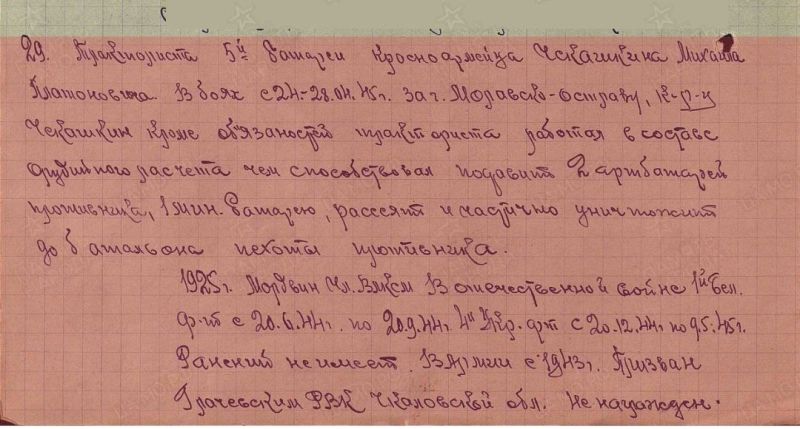 29. Тракториста 5й батареи красноармейца Чекашкина Михаила
Платоновича. В боях с 24-28.04.45г. за г. Моравско-Остраву, к-р-ц
Чекашкин кроме обязаностей тракториста работал в составе
орудийного расчета чем способствовал подавит 2 артбатареи
противника, 1 мин. батарею, рассеят и частично уничтожит
до батальона пехоты противника.
1925г. Мордвин Чл. ВЛКСМ В отечественной войне 1й Бел.
фр-т с 20.6.44г. по 20.9.44г. 4й Укр. фрт с 20.12.44г по 9.5.45г.
Ранений не имеет. В Армии с 1943г. Призван
Грачевским РВК Чкаловской обл. Не награжден.